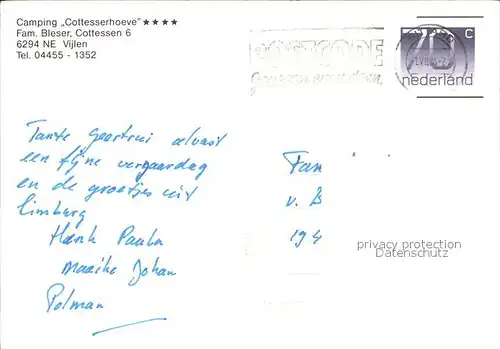 Camping „Cottesserhoeve" ★★★★
Fam. Bleser, Cottessen 6
6294 NE Vijlen
Tel. 04455 - 1352
POSTCODE
70 C
nederland
Tante Geertrui alvast
een fijne verjaardag
en de groetjes uit
limburg
Henk Paula
Maaike Johan
Polman
Fam
v. B
194
privacy protection
Datenschutz